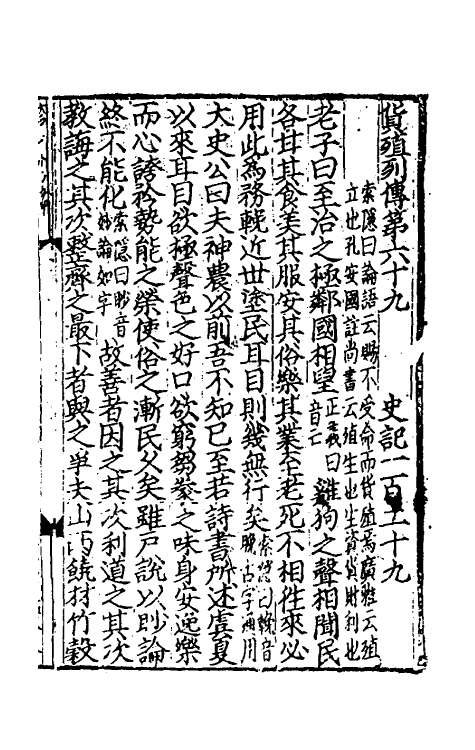 貨殖列傳第六十九　史記一百二十九
索隱曰論語云賜不受命而貨殖焉廣雅云殖
立也孔安國註尚書云殖生也生資貨財利也
老子曰至治之極鄰國相望正義曰音亡雞狗之聲相聞民
各甘其食美其服安其俗樂其業至老死不相往來必
用此為務輓近世塗民耳目則幾無行矣索隱曰輓音晚古字通用
大史公曰夫神農以前吾不知已至若詩書所述虞夏
以來耳目欲極聲色之好口欲窮芻豢之味身安逸樂
而心誇矜勢能之榮使俗之漸民久矣雖戶說以眇論
終不能化索隱曰眇音妙論如字故善者因之其次利道之其次
教誨之其次整齊之最下者與之爭夫山西饒材竹穀